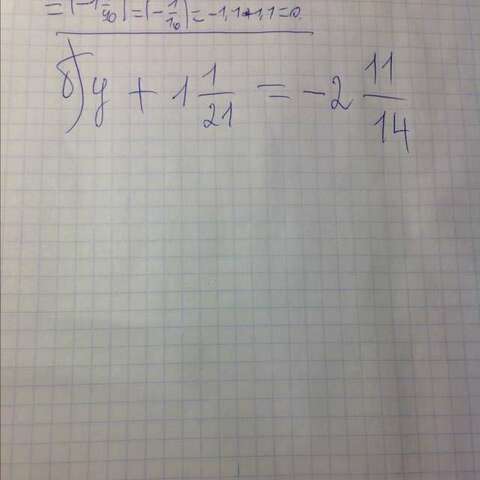 = |-1 1/10| = |-1/10| = -1,1+1,1=0.
б) y + 1 1/21 = -2 11/14